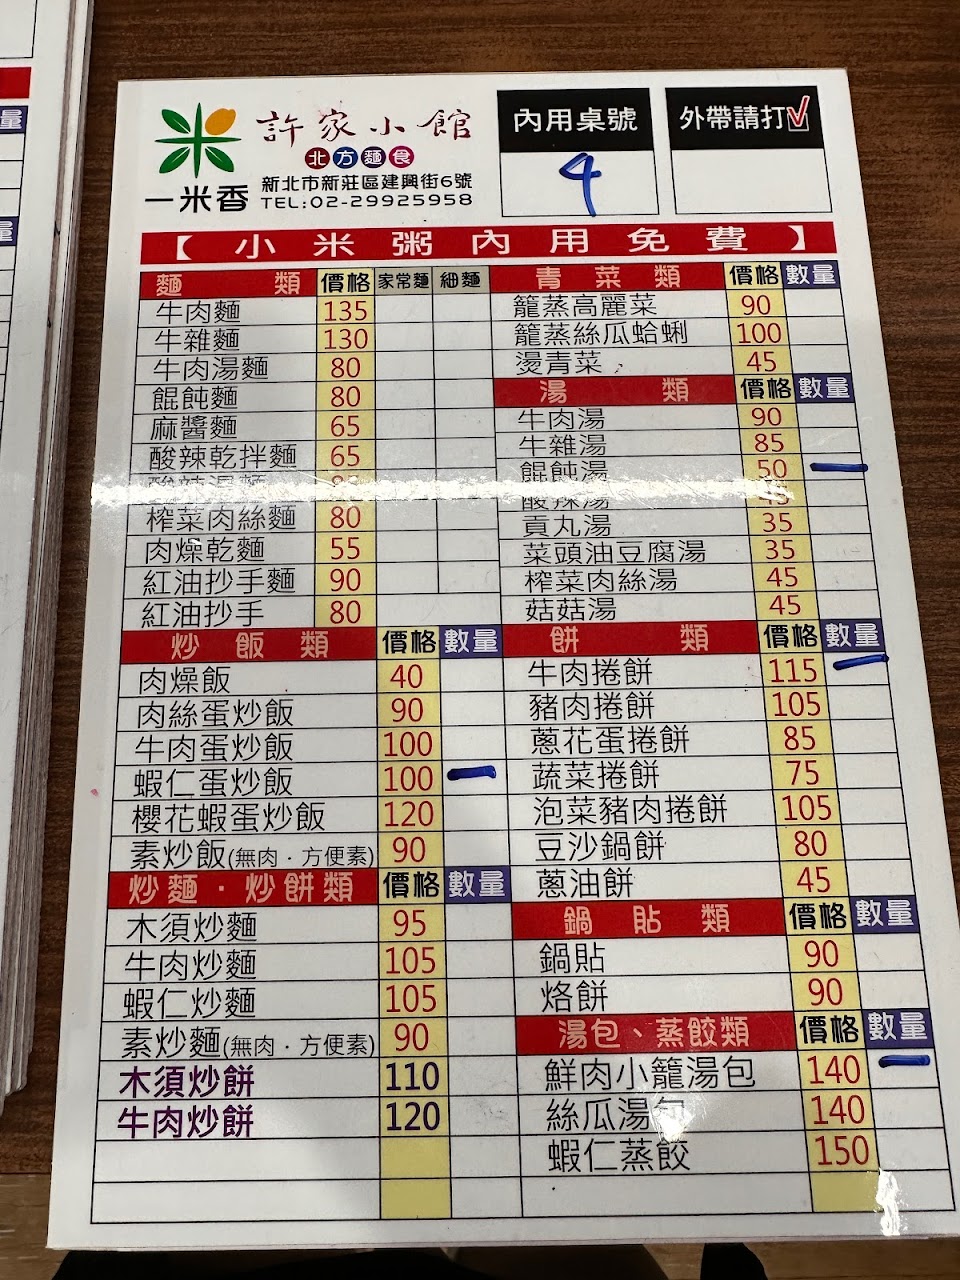 許家小館
北方麵食
一米香
新北市新莊區建興街6號
TEL:02-29925958
內用桌號
4
外帶請打☑
【小米粥內用免費】
麵類 價格 家常麵 細麵
牛肉麵 135
牛雜麵 130
牛肉湯麵 80
餛飩麵 80
麻醬麵 65
酸辣乾拌麵 65
酸辣湯麵
榨菜肉絲麵 80
肉燥乾麵 55
紅油抄手麵 90
紅油抄手 80
炒飯類 價格 數量
肉燥飯 40
肉絲蛋炒飯 90
牛肉蛋炒飯 100
蝦仁蛋炒飯 100 一
櫻花蝦蛋炒飯 120
素炒飯(無肉.方便素) 90
炒麵.炒餅類 價格 數量
木須炒麵 95
牛肉炒麵 105
蝦仁炒麵 105
素炒麵(無肉.方便素) 90
木須炒餅 110
牛肉炒餅 120
青菜類 價格 數量
籠蒸高麗菜 90
籠蒸絲瓜蛤蜊 100
燙青菜 45
湯類 價格 數量
牛肉湯 90
牛雜湯 85
餛飩湯 50 一
酸辣湯 45
貢丸湯 35
菜頭油豆腐湯 35
榨菜肉絲湯 45
菇菇湯 45
餅類 價格 數量
牛肉捲餅 115 一
豬肉捲餅 105
蔥花蛋捲餅 85
蔬菜捲餅 75
泡菜豬肉捲餅 105
豆沙鍋餅 80
蔥油餅 45
鍋貼類 價格 數量
鍋貼 90
烙餅 90
湯包、蒸餃類 價格 數量
鮮肉小籠湯包 140 一
絲瓜湯包 140
蝦仁蒸餃 150